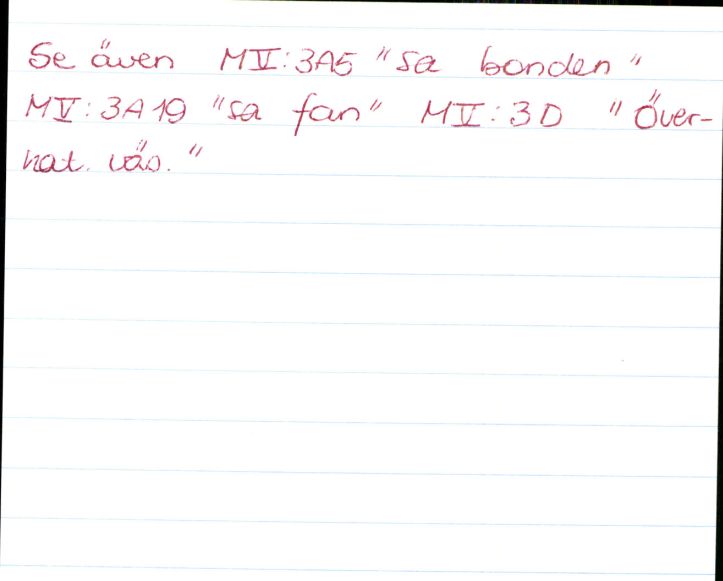 Se även MV:3A5 "sa bonden"
MV:3A19 "sa fan" MV:3D "Över-
nat. väs."